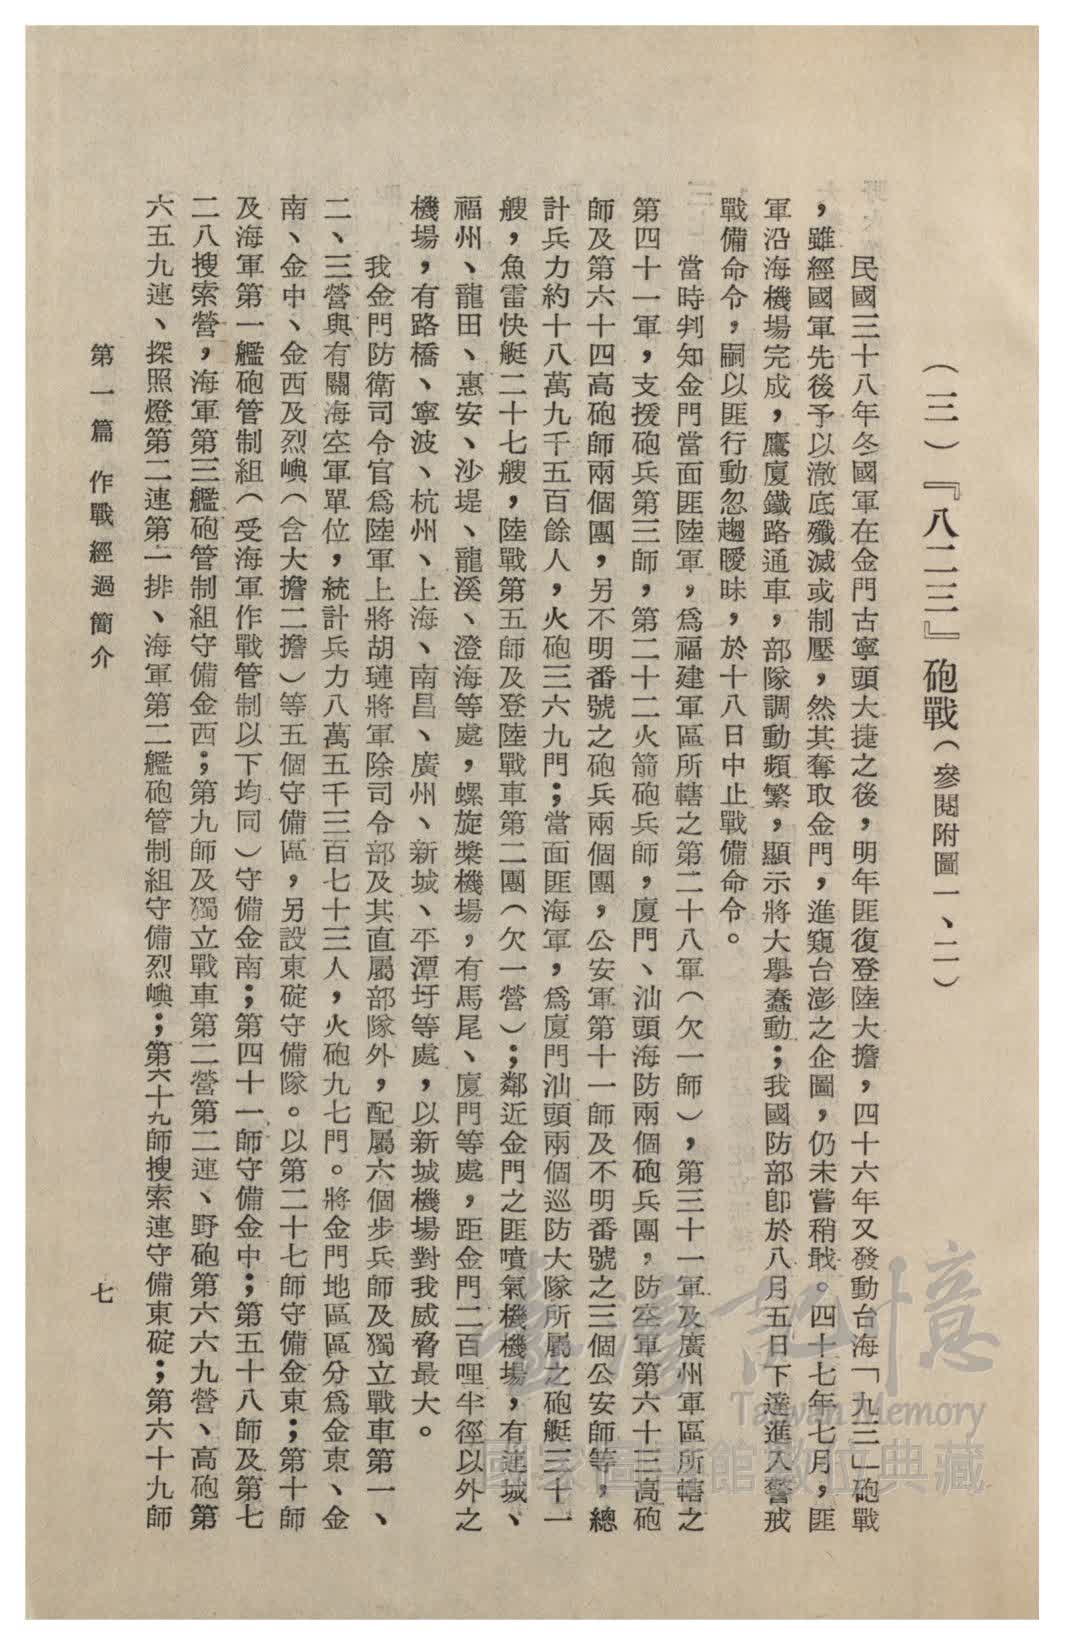 (三)『八二三』砲戰(參閱附圖一、二)
民國三十八年冬國軍在金門古寧頭大捷之後，明年匪復登陸大擔，四十六年又發動台海「九三」砲戰
，雖經國軍先後予以澈底殲滅或制壓，然其奪取金門，進窺台澎之企圖，仍未嘗稍戢。四十七年七月，匪
軍沿海機場完成，鷹廈鐵路通車，部隊調動頻繁，顯示將大舉蠢動；我國防部卽於八月五日下達進入警戒
戰備命令，嗣以匪行動忽趨曖昧，於十八日中止戰備命令。
當時判知金門當面匪陸軍，爲福建軍區所轄之第二十八軍（欠一師），第三十一軍及廣州軍區所轄之
第四十一軍，支援砲兵第三師，第二十二火箭砲兵師，廈門、汕頭海防兩個砲兵團，防空軍第六十三高砲
師及第六十四高砲師兩個團，另不明番號之砲兵兩個團，公安軍第十一師及不明番號之三個公安師等，總
計兵力約十八萬九千五百餘人，火砲三六九門；當面匪海軍，爲廈門汕頭兩個巡防大隊所屬之砲艇三十一
艘，魚雷快艇二十七艘，陸戰第五師及登陸戰車第二團（欠一營）；鄰近金門之匪噴氣機機場，有連城、
福州、龍田、惠安、沙堤、龍溪、澄海等處，螺旋槳機場，有馬尾、廈門等處，距金門二百哩半徑以外之
機場，有路橋、寧波、杭州、上海、南昌、廣州、新城、平潭圩等處，以新城機場對我威脅最大。
我金門防衛司令官爲陸軍上將胡璉將軍除司令部及其直屬部隊外，配屬六個步兵師及獨立戰車第一、
二、三營與有關海空軍單位，統計兵力八萬五千三百七十三人，火砲九七門。將金門地區區分爲金東、金
南、金中、金西及烈嶼（含大擔二擔）等五個守備區，另設東碇守備隊。以第二十七師守備金東；第十師
及海軍第一艦砲管制組（受海軍作戰管制以下均同）守備金南；第四十一師守備金中；第五十八師及第七
二八搜索營，海軍第三艦砲管制組守備金西；第九師及獨立戰車第二營第二連、野砲第六六九營、高砲第
六五九連、探照燈第二連第一排、海軍第二艦砲管制組守備烈嶼；第六十九師搜索連守備東碇；第六十九師
第一篇 作戰經過簡介
七
臺灣記憶
Taiwan Memory
國家圖書館數位典藏